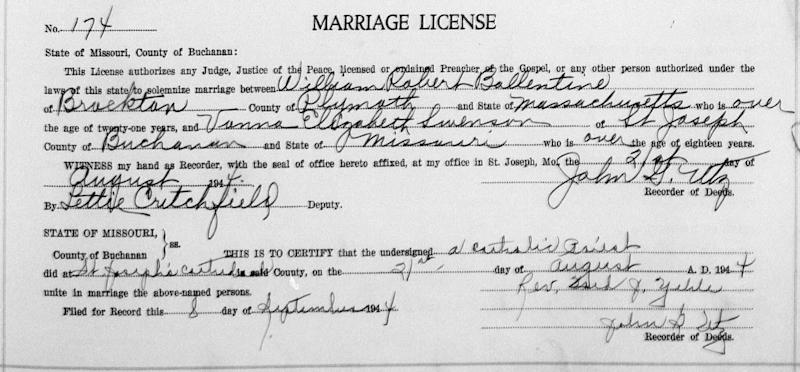 MARRIAGE LICENSE
No. 174
State of Missouri, County of Buchanan:
This License authorizes any Judge, Justice of the Peace, licensed or ordained Preacher of the Gospel, or any other person authorized under the
laws of this state to solemnize marriage between William Robert Ballentine
of Brockton County of Plymoth and State of Massachusetts who is over
the age of twenty-one years, and Vanna Elizabeth Swenson of St Joseph
County of Buchanan and State of Missouri who is over the age of eighteen years.
WITNESS my hand as Recorder, with the seal of office hereto affixed, at my office in St. Joseph, Mo., the 21st day of
August 1944. John G. Utz
Recorder of Deeds.
By Lettie Critchfield Deputy.
STATE OF MISSOURI,
County of Buchanan } ss. THIS IS TO CERTIFY that the undersigned a Catholic Priest
did at St Joseph's Cathedral in said County, on the 21st day of August A. D. 1944
unite in marriage the above-named persons. Rev. J.
Filed for Record this 8 day of September 1944
John G Utz
Recorder of Deeds.